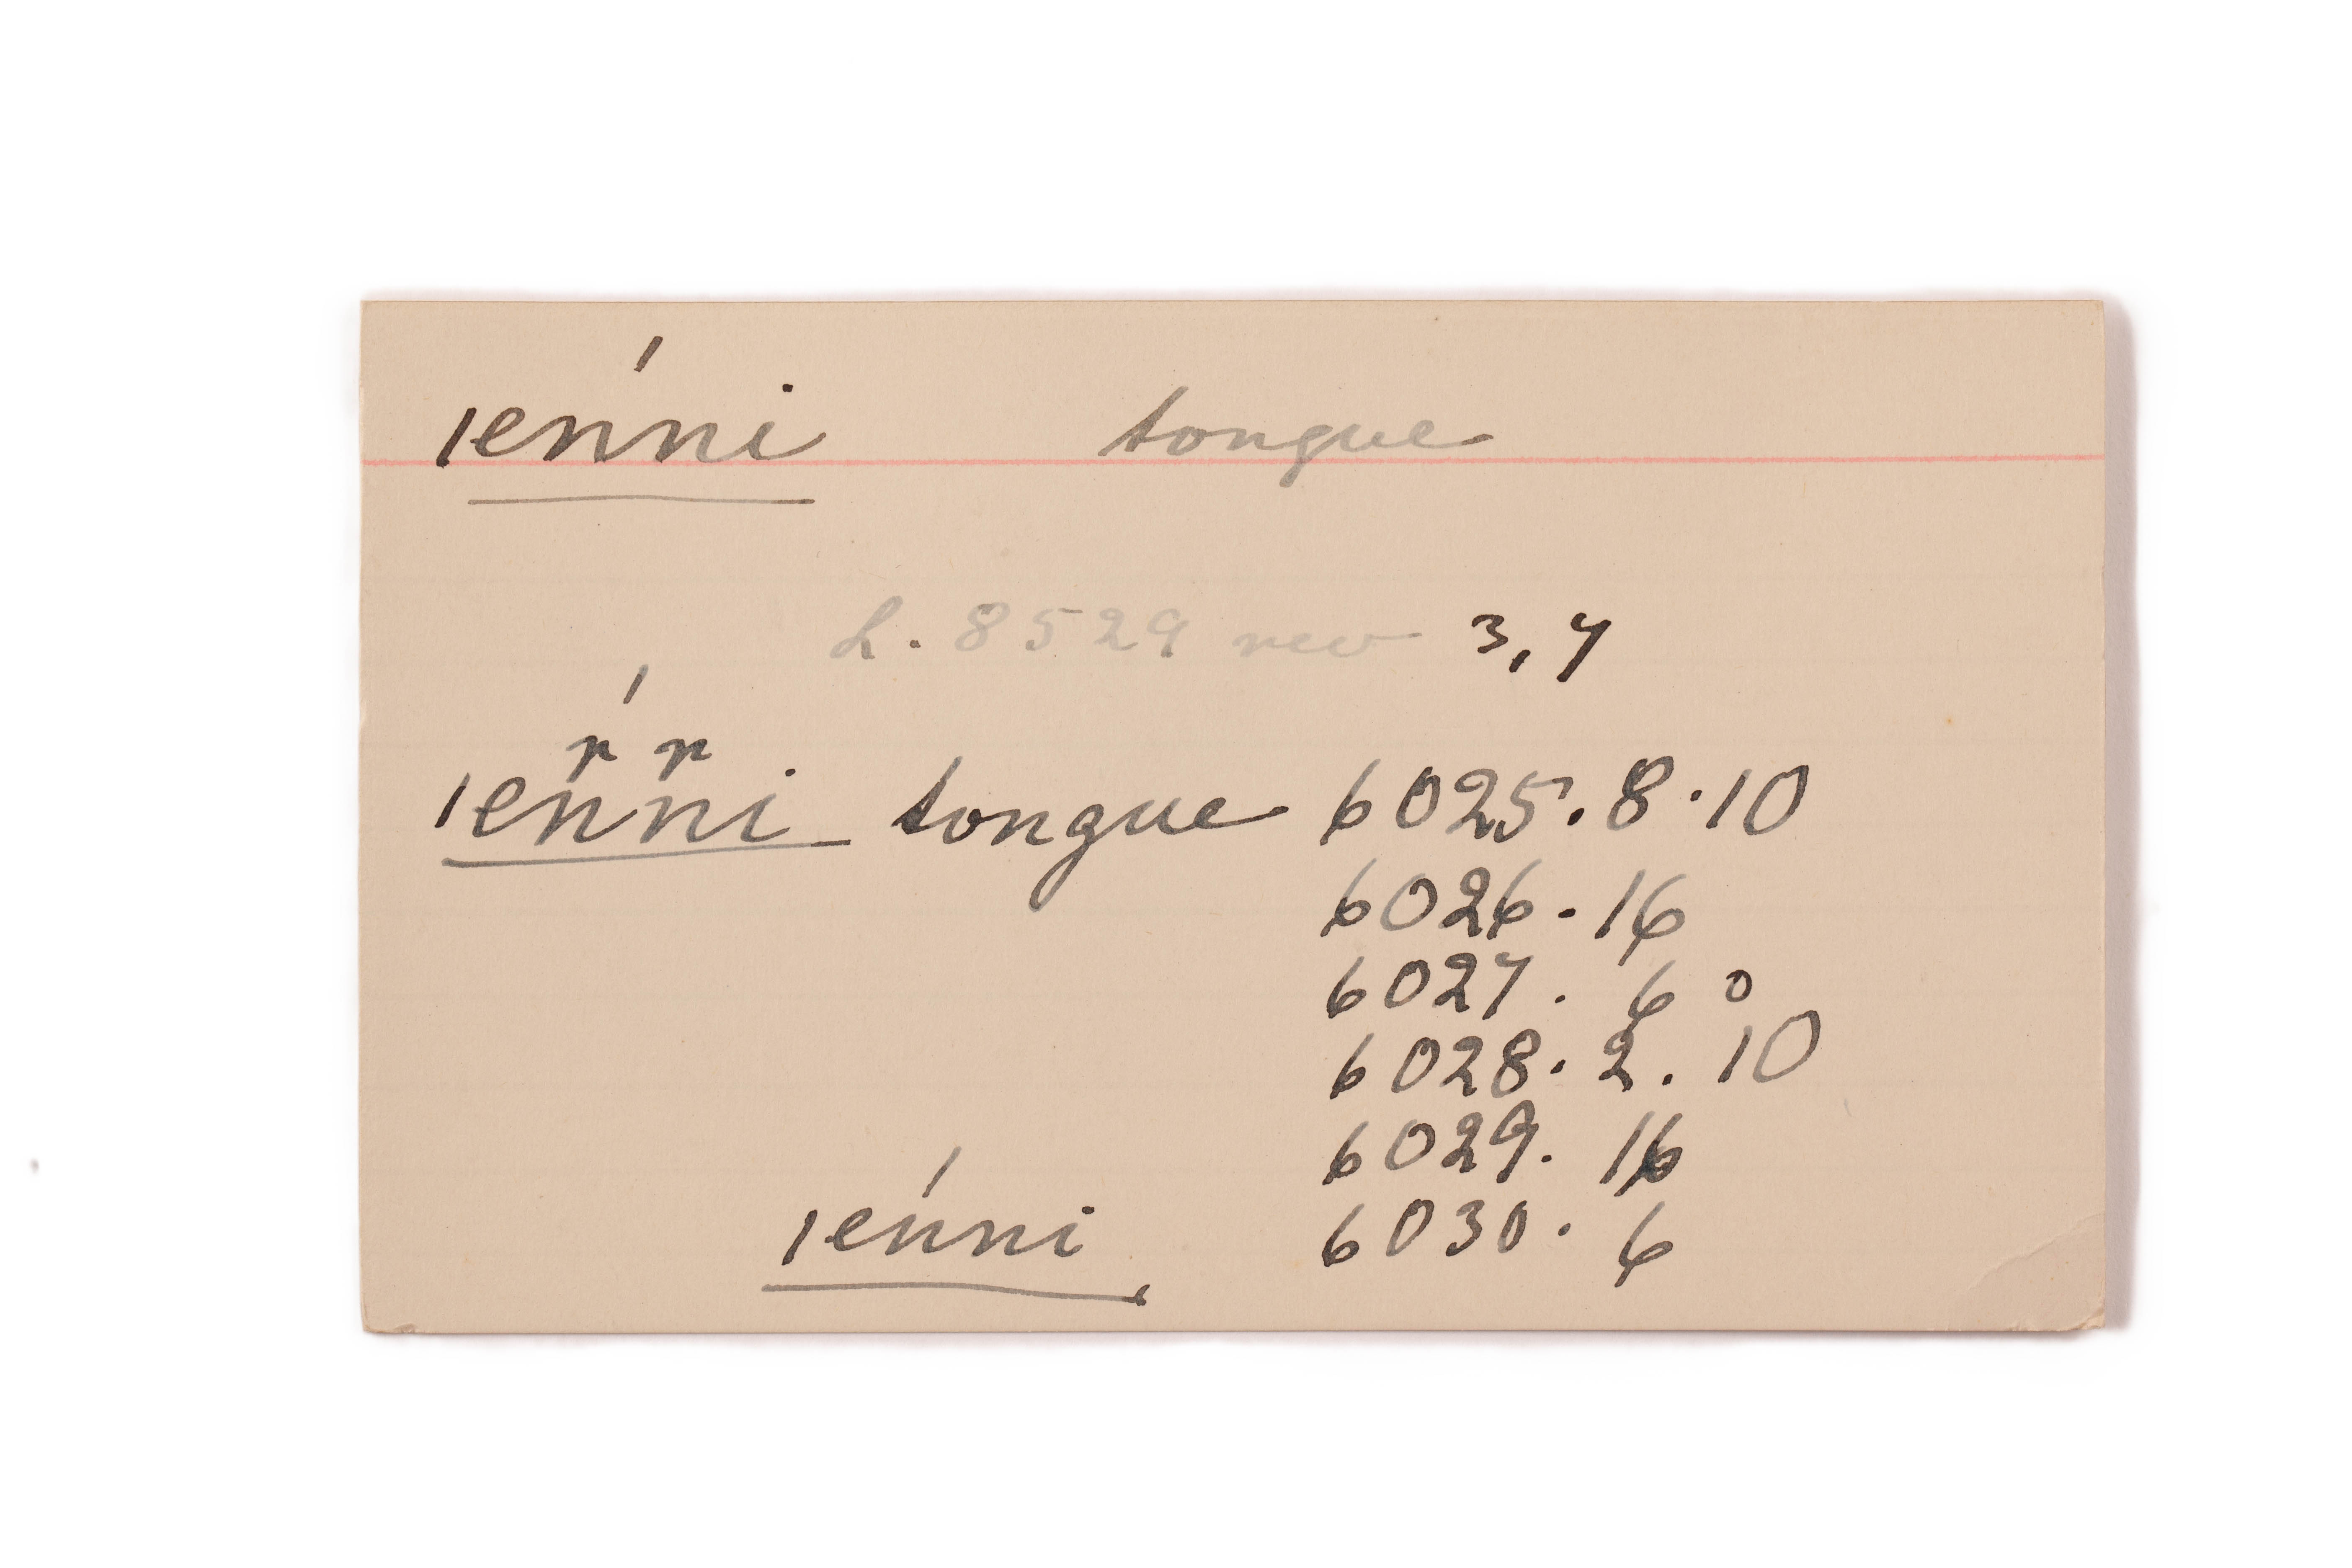 ǀeńni tongue
L. 8529 rev 3, 7
n n
ǀeńni tongue 6025. 8. 10
6026. 16
6027. 6 o
6028. 2. 10
6029. 16
ǀeńni 6030. 6